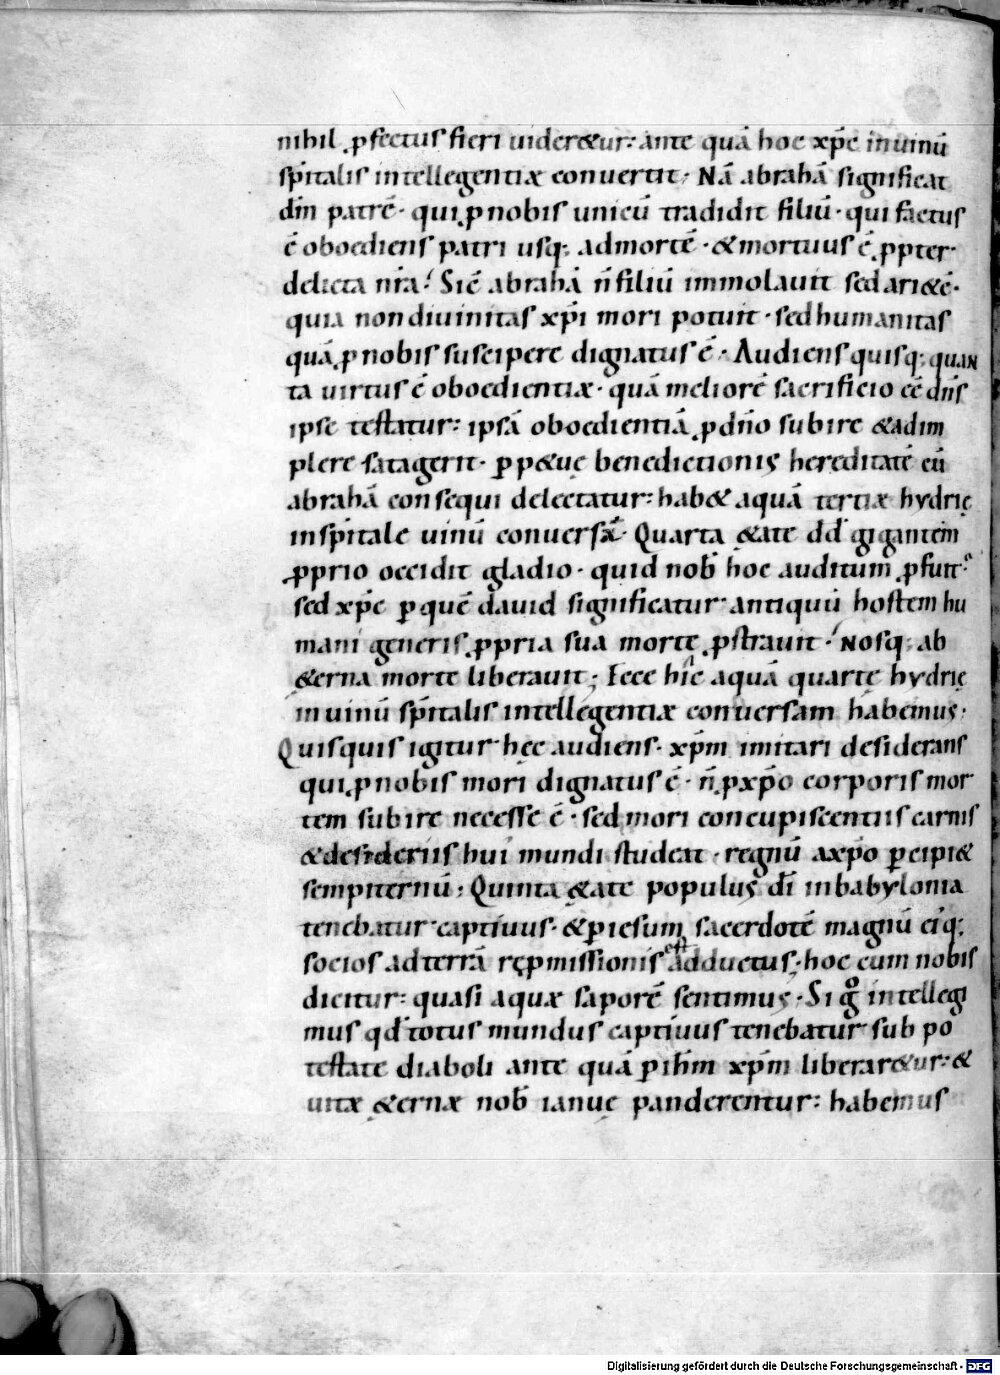 nihil ꝓfectus fieri uider&ur: ante quā hoc xp̄c inuinū
sp̄italis intellegentiæ conuertit; Nā abrahā significat
dm̄ patrē· qui ꝓnobis unicū tradidit filiū· qui factus
ē oboediens patri usq; admortē· &mortuus ē ꝓpter
delicta nr̄a; Sic abrahā n̄ filiū immolauit sed ari&ē·
quia non diuinitas xp̄i mori potuit· sed humanitas
quā ꝓnobis suscipere dignatus ē; Audiens quisq; quan
ta uirtus ē oboedientiæ· quā meliorē sacrificio eē dn̄s
ipse testatur: ipsā oboedientiā ꝓ dn̄o subire &adim
plere satagerit· ꝑp&uę benedictionis hereditatē cū
abrahā consequi delectatur: hab& aquā tertiæ hydrię
in sp̄itale uinū conuersā· Quarta &ate dd̄ gigantem
ꝓprio occidit gladio· quid nob̄ hoc auditum ꝓfuit·
sed xp̄c ꝑ quē dauid significatur· antiquū hostem hu
mani generis ꝓpria sua morte ꝓstrauit· Nosq; ab
&erna morte liberauit; Ecce hic aquā quartę hydrię
in uinū sp̄italis intellegentiæ conuersam habemus·
Quisquis igitur hęc audiens· xp̄m imitari desiderans
qui ꝓnobis mori dignatus ē· n̄ ꝓxp̄o corporis mor
tem subire necesse ē· sed mori concupiscentiis carnis
&desideriis hui mundi studeat· regnū axp̄o ꝑcipi&
sempiternū; Quinta &ate populus dī inbabylonia
tenebatur captiuus· &ꝑ iesum sacerdotē magnū ei'q;
socios adterrā reꝑmissionis est adductus; hoc cum nobis
dicitur: quasi aquæ saporē sentimus· Si gͦ intellegi
mus qd̄ totus mundus captiuus tenebatur sub po
testate diaboli ante quā ꝑ ihm̄ xp̄m liberar&ur: &
uitæ &ernæ nob̄ ianuę panderentur: habemus
Digitalisierung gefördert durch die Deutsche Forschungsgemeinschaft - DFG